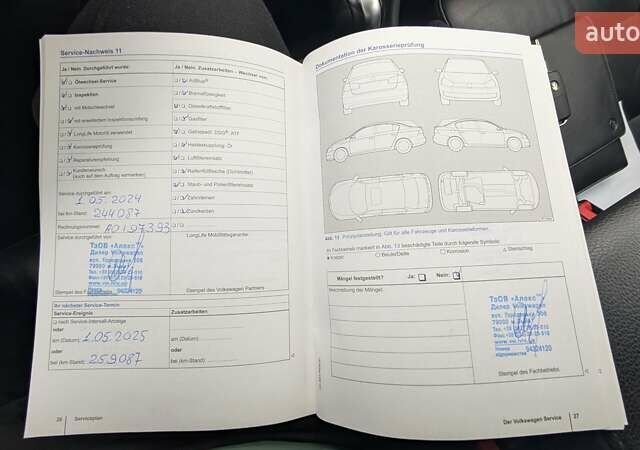 Service-Nachweis 11
Ja / Nein: Durchgeführt wurde:
Ölwechsel-Service
Inspektion
mit Motorölwechsel
mit erweitertem Inspektionsumfang
LongLife Motoröl verwendet
Karosserieprüfung
Reparaturempfehlung
Kundenwunsch
(auch auf dem Auftrag vermerken)
Service durchgeführt am:
1.05.2024
bei km-Stand:
244087
Rechnungsnummer:
Service durchgeführt von:
ТзОВ «Алекс»
Дилер Volkswagen
Ja / Nein: Zusatzarbeiten - Wechsel von:
AdBlue®
Bremsflüssigkeit
Dieselkraftstofffilter
Gasfilter
Getriebeöl: DSG®, ATF
Haldexkupplung: Öl
Luftfiltereinsatz
Reifenfüllflasche (Dichtmittel)
Staub- und Pollenfiltereinsatz
Zahnriemen
Zündkerzen
LongLife Mobilitätsgarantie
Stempel des Volkswagen Partners
Ihr nächster Service-Termin:
Service-Ereignis
nach Service-Intervall-Anzeige
oder
am (Datum):
1.05.2025
oder
bei (km-Stand):
259087
Zusatzarbeiten:
am (Datum):
oder
bei (km-Stand):
26
Serviceplan
Dokumentation der Karosserieprüfung
Abb. 13 Prinzipdarstellung: Gilt für alle Fahrzeuge und Karosserieformen.
In Fachbetrieb markiert in Abb. 13 beschädigte Teile durch folgende Symbole:
Kratzer
Beule/Delle
Korrosion
Steinschlag
Mängel festgestellt?
Ja:
Nein:
Beschreibung der Mängel:
ТзОВ «Алекс»
Дилер Volkswagen
Stempel des Fachbetriebs
Der Volkswagen Service
27
auto